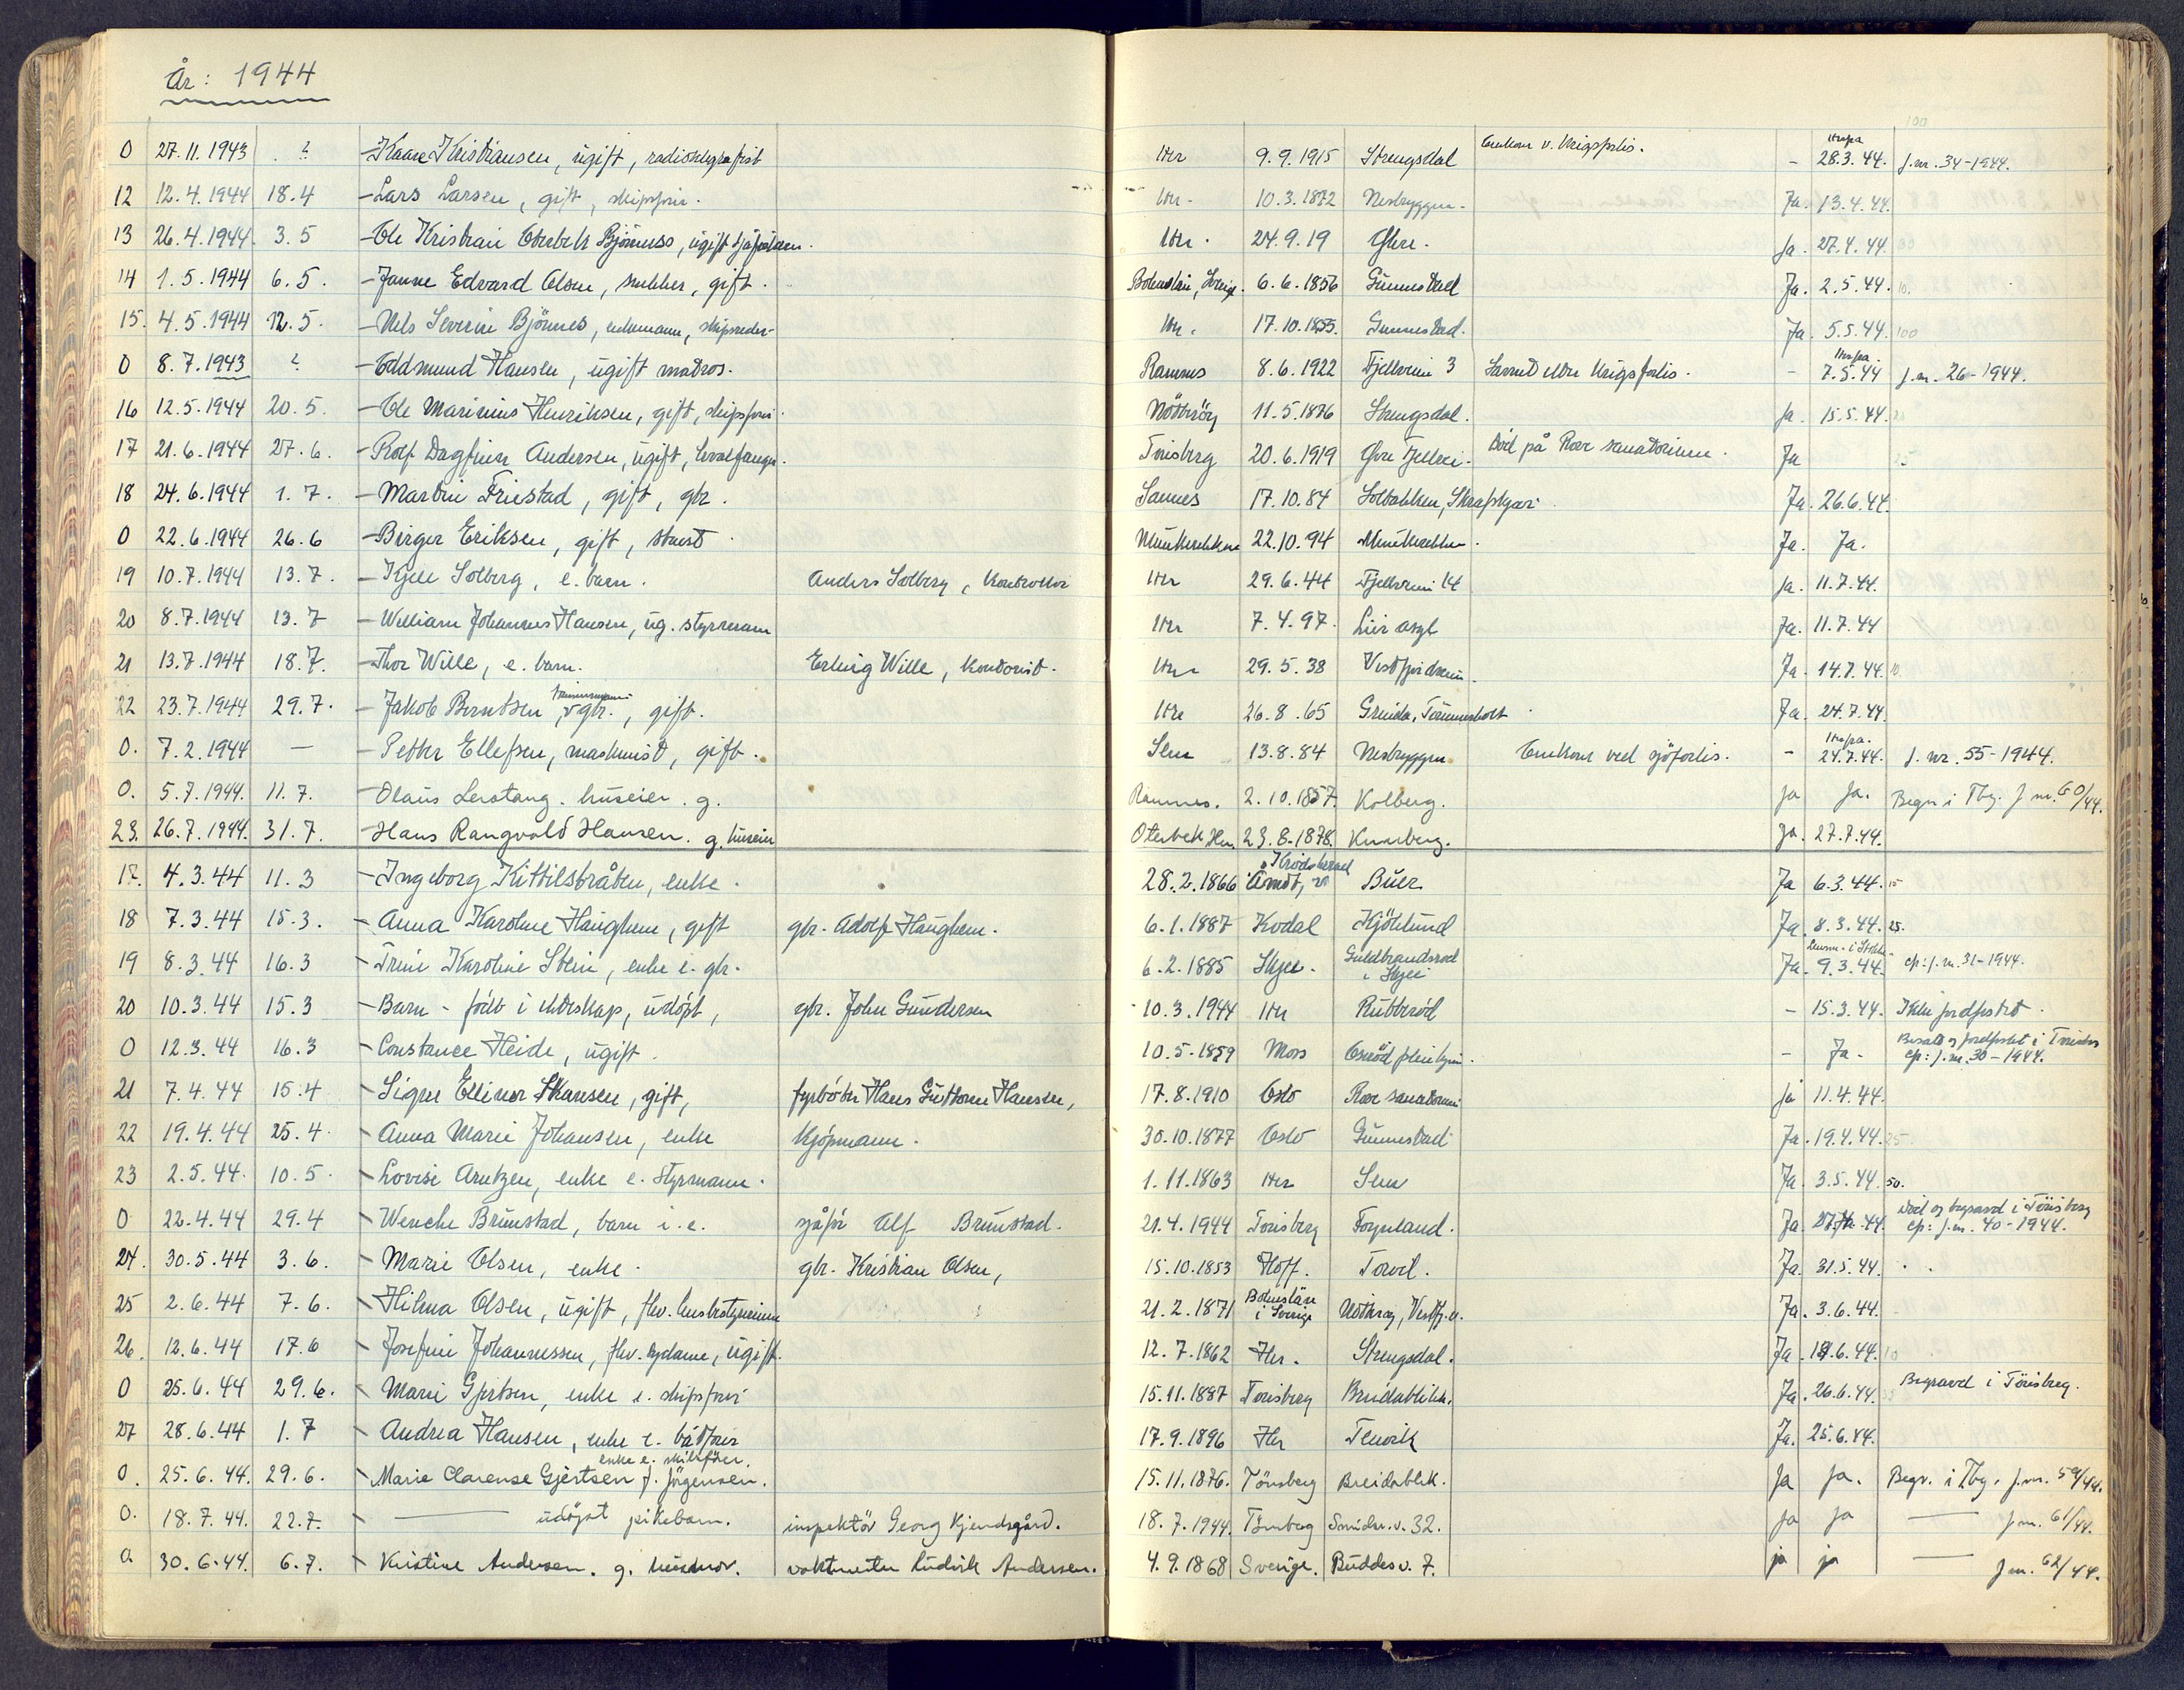 År: 1944
0 27.11.1943 ? - Kaare Kristiansen, ugift, radiotelegrafist Her 9.9.1915 Strengsdal Omkom v. krigsforlis. - 28.3.44. J.nr. 34-1944.
12 12.4.1944 18.4 - Lars Larsen, gift, Her- 10.3.1872 Nesbryggen. Ja. 13.4.44.
13 26.4.1944. 3.5 - Ole Kristian Oterbek Bjönness, ugift Her. 24.9.19 Ja. 27.4.44.
14 1.5.1944 6.5. - Edvard Olsen, snekker, gift. 6.6.1856 Gunnestad Ja. 2.5.44. 10.
15. 4.5.1944 12.5. - Nels Severin Bjönnes, enkemann, skipsreder- Her. 17.10.1855. Gunnestad. Ja. 5.5.44. 100
0 8.7.1943 ? - Eddmund Hansen, ugift matros. Ramnes 8.6.1922 Fjellveien 3 krigsforlis. - 7.5.44 J.nr. 26-1944.
16 12.5.1944 20.5. - Ole Marinius Henriksen, gift, Nötteröy 11.5.1876 Strengsdal. Ja. 15.5.44.
17 21.6.1944 27.6. - Rolf Dagfinn Andersen, ugift, hvalfanger. Tönsberg 20.6.1919 Övre Fjellvei. Död på Roer sanatorium. Ja 25
18 24.6.1944 1.7. - Martin Friestad, gift, gbr. 17.10.84 Solbakken, Ja. 26.6.44.
0 22.6.1944 26.6 - Birger Eriksen, gift, Munkerekken 22.10.94 Munkerekken. Ja. Ja.
19 10.7.1944 13.7. - Kjell Solberg, e. barn. Anders Solberg, kontrollör Her 29.6.44 Fjellveien 14 Ja. 11.7.44.
20 8.7.1944 13.7 - William Johannes Hansen, ug. styrmann Her 7.4.97. Lier asyl Ja. 11.7.44
21 13.7.1944 18.7. - Thor Wille, e. barn. Erling Wille, kontorist. Her 29.5.38 Ja. 14.7.44. 10.
22 23.7.1944 29.7. - Jakob Berntsen gbr., gift. Her 26.8.65 Grinda, Ja. 24.7.44.
0. 7.2.1944 — - Petter Ellefsen, maskinist, gift. Sem 13.8.84 Nesbryggen Omkom ved sjöforlis. - 24.7.44. J. nr. 55-1944.
0. 5.7.1944. 11.7. - Olaus Lerstang. huseier. g. Ramnes. 2.10.1857. Kolberg. ja ja. Begr. i Tbg. J nr. 60/44.
23. 26.7.1944. 31.7. - Hans Rangvald Hansen. g. huseier Oterbek Her. 23.8.1878. Ja. 27.7.44.
17. 4.3.44 11.3 - Ingeborg Kittilsbråten, enke. 28.2.1866 Buer Ja 6.3.44. 15
18 7.3.44 15.3. - Anna Karoline Haughem, gift gbr. Adolf Haughem. 6.1.1887 Kodal Kjölelund Ja. 8.3.44. 25.
19 8.3.44 16.3 - Trine Karoline Stein, enke e. gbr. 6.2.1885 Skjee. Guldbrandsrød i Skjee Ja. 9.3.44. cfr: j.nr. 31-1944.
20 10.3.44 15.3 - Barn - född i ekteskap, udöpt, gbr. John Gundersen 10.3.1944 Her Rubberöd - 15.3.44. Ikke jordfestet.
0 12.3.44 16.3 - Constance Heide, ugift. 10.5.1859 Moss - Ja. jordfestet i cfr: j.nr. 30-1944.
21 7.4.44 15.4 - Signe Ellinor Skansen, gift, fyrböter Hans Guttorm Hansen, 17.8.1910 Oslo Roer sanatorium ja 11.4.44.
22 19.4.44 25.4. - Anna Marie Johansen, enke kjöpmann. 30.10.1877 Oslo Gunnestad Ja. 19.4.44. 25.
23 2.5.44. 10.5. - Lovise Arntzen, enke e. styrmann. 1.11.1863 Her Sem Ja. 3.5.44. 50.
0 22.4.44 29.4 - Wenche Brunstad, barn i. e. sjåfør Alf Brunstad. 21.4.1944 Tönsberg Foynland. Ja Död og begravd i Tönsberg cfr: j.nr. 40-1944.
24. 30.5.44 3.6. - Marie Olsen, enke. gbr. Kristian Olsen, 15.10.1853 Hoff. Ja. 31.5.44.
25 2.6.44 7.6. - Hilma Olsen, ugift, fhv. husbestyrerinne 21.2.1871 Bohuslän i Sverige Nötteröy, Ja. 3.6.44.
26. 12.6.44 17.6 - Josefine Johannessen, fhv. sydame, ugift. 12.7.1862 Her. Strengsdal. Ja .6.44. 10
0 25.6.44 29.6. - Marie Gjertsen, enke e. skipsförer 15.11.1887 Tönsberg Breidablikk. Ja. 26.6.44. Begravd i Tönsberg.
27 28.6.44 1.7 - Andrea Hansen, enke e. båtförer 17.9.1896 Her Tenvik Ja. 25.6.44.
enke e. skibsförer.
0. 25.6.44. 29.6. - Marie Clarense Gjertsen f. Jörgensen. 15.11.1876. Tönsberg Breidablik. ja ja. Begr. i Tbg. j.nr. 59/44.
0. 18.7.44. 22.7. — udöpt pikebarn. inspektör Georg Kjendsgård. 18.7.1944. Tönsberg Smidsr.v. 32. ja ja — J nr. 61/44.
0. 30.6.44. 6.7. - Kristine Andersen. g. husmor. vaktmester Ludvik Andersen. 4.9.1868 Sverige. Buddesv. 7. ja ja — J nr. 62/44.